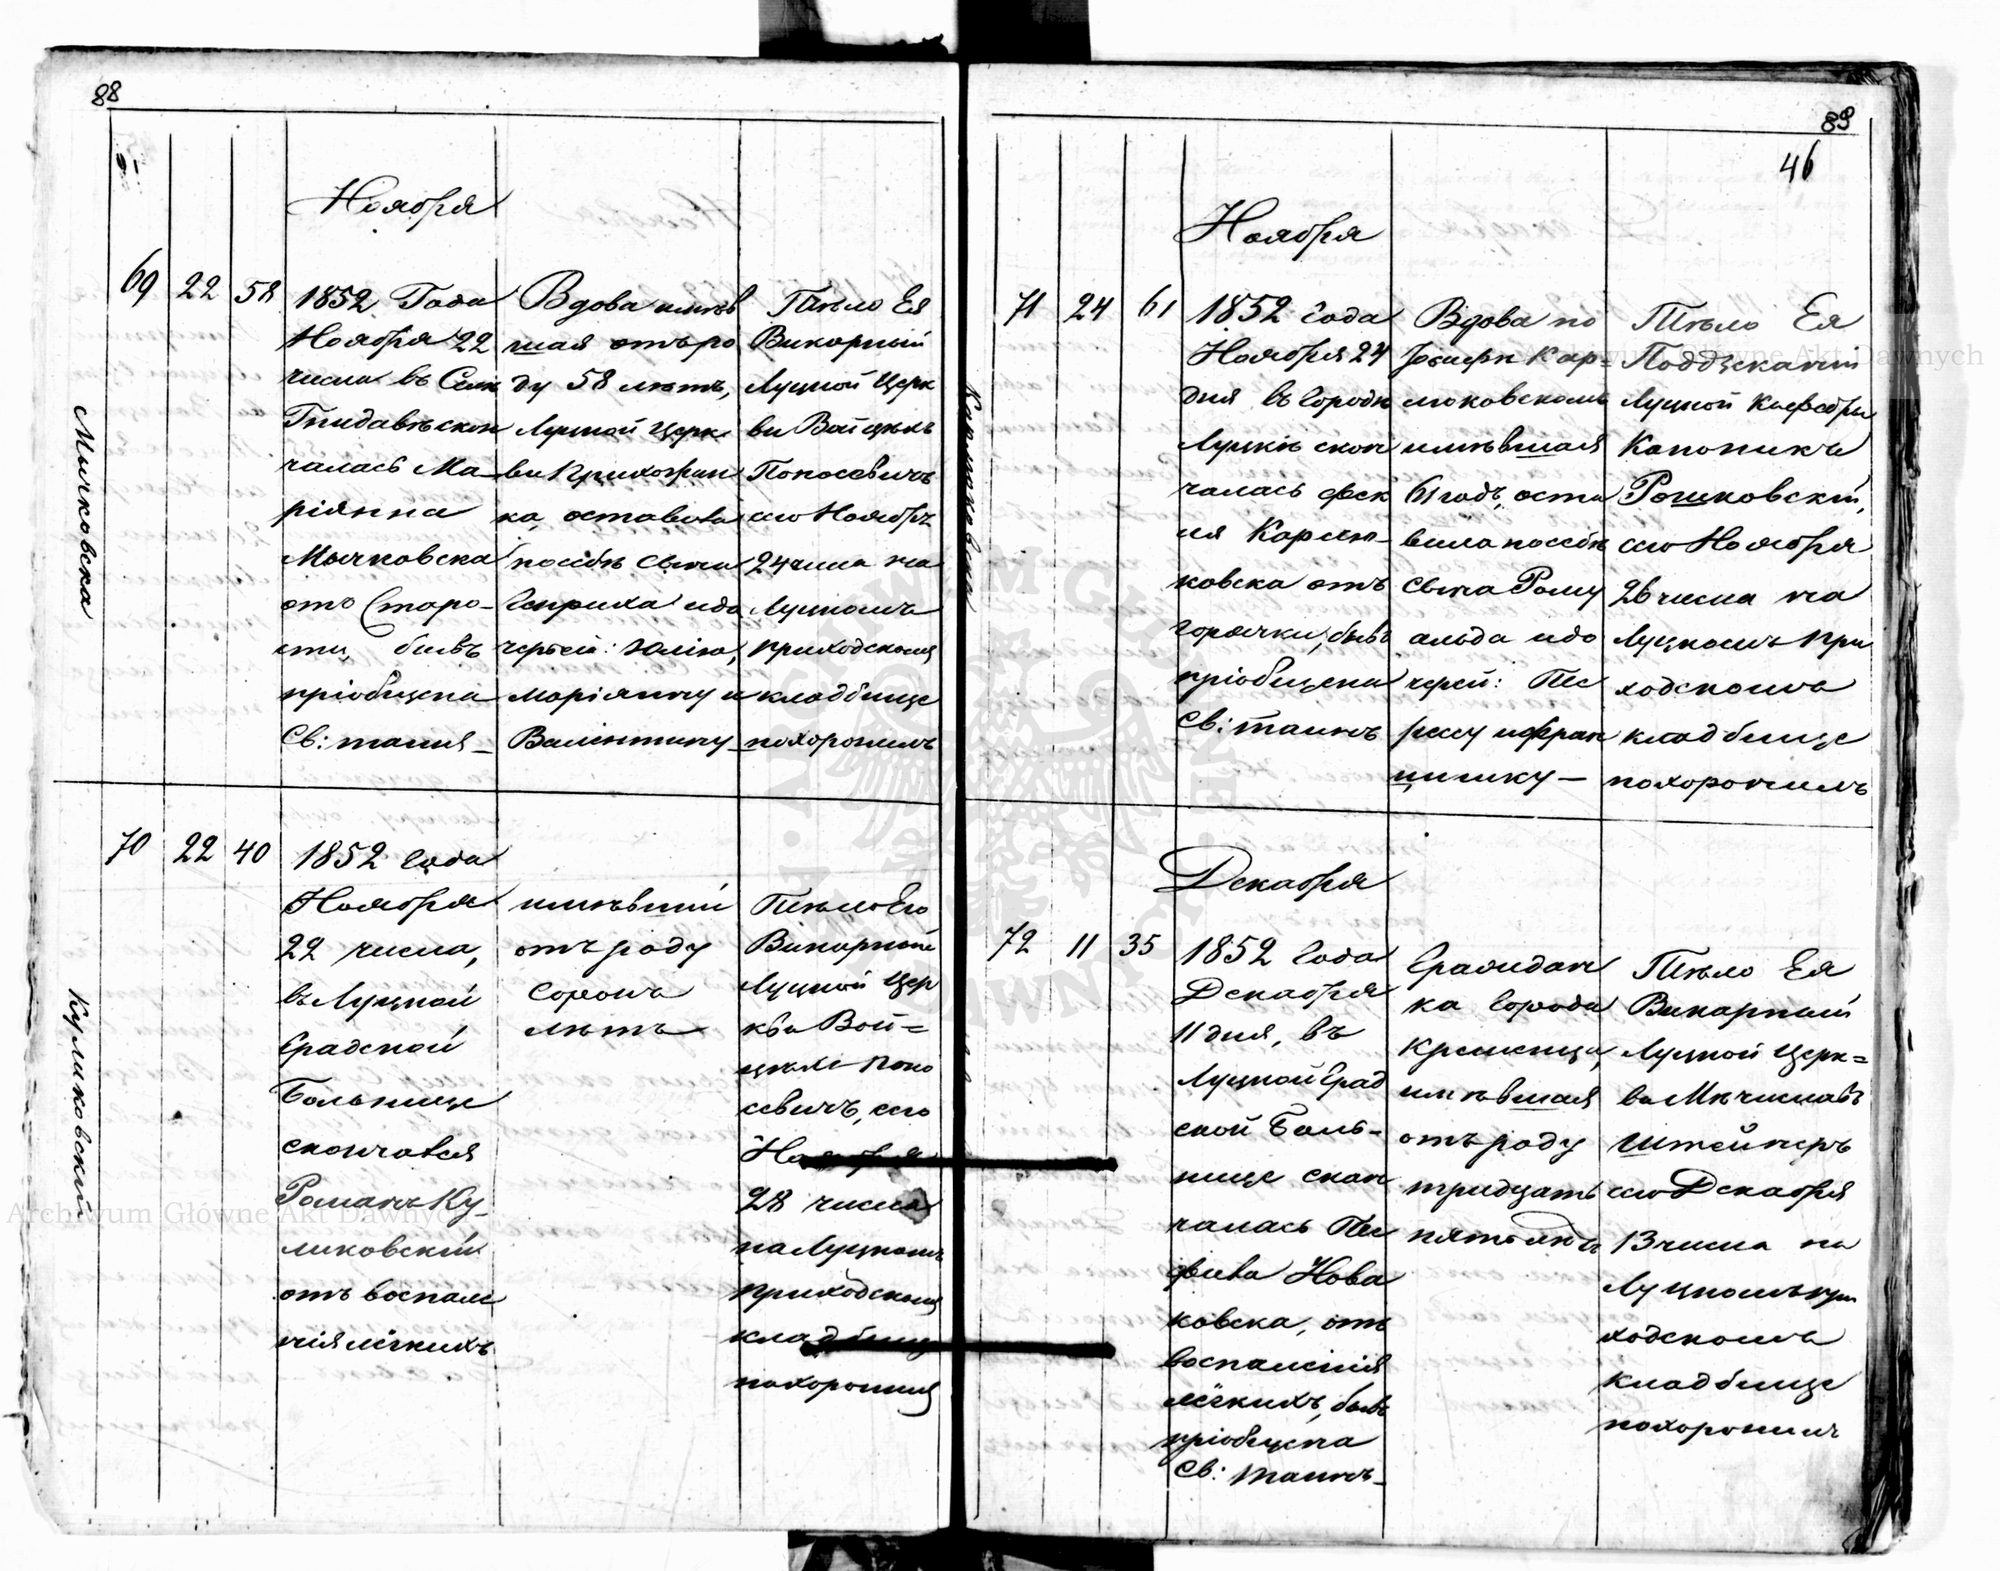 88
Ноября
Мычковска
69 22 58
1852 Года
Ноября 22
числа въ Селѣ
Гнидавѣ скон
чалась Ма-
ріянна
Мычковска
отъ Старо-
сти, бывъ
пріобщена
Св: таинъ
Вдова имѣв
шая отъ ро
ду 58 лѣтъ,
Луцкой Церк
ви Прихожан
ка, оставила
послѣ сына
Генриха и до
черей: Юлію,
Маріянну и
Валентину
Тѣло Ея
Викарный
Луцкой Церк
ви Войцѣхъ
Поносевичъ
сего Ноябр.
24 числа на
Луцкомъ
приходскомъ
кладбище
похоронилъ
Куликовский
70 22 40
1852 года
Ноября
22 числа,
въ Луцкой
Градской
Больнице
скончался
Романъ Ку-
ликовскій
отъ воспале
нія лёгкихъ
имѣвшій
отъ роду
сорокъ
лѣтъ
Тѣло Его
Викарный
Луцкой Цер
кви Вой=
цѣхъ Поно
севичъ, сего
Ноября
28 числа
на Луцкомъ
приходскомъ
кладбищ
похоронил
89
46
Ноября
Кармоковска
71 24 61
1852 года
Ноября 24
дня въ городѣ
Луцкѣ скон
чалась Фек
ля Кармо-
ковска отъ
горячки, бывъ
пріобщена
Св: таинъ
Вдова по
Іосифѣ Кар-
моковскомъ
имѣвшая
61 годъ, оста
вила послѣ
сына Рому
альда и до
черей: Те
ресу и Фран
цишку –
Тѣло Ея
Поддзеканій
Луцкой Каѳедры
Каноникъ
Рошковскій,
сего Ноября
26 числа на
Луцкомъ При
ходскомъ
кладбище
похоронилъ
Декабря
72 11 35
1852 года
Декабря
11 дня, въ
Луцкой Град
ской Боль-
нице скон
чалась Тео
фила Нова
ковска, отъ
воспаленія
лёгкихъ, бывъ
пріобщена
Св: таинъ-
Граждан
ка города
Кременца,
имѣвшая
отъ роду
тридцать
пять лѣтъ
Тѣло Ея
Викарный
Луцкой Церк=
ви Мѣчиславъ
Штейнеръ
сего Декабря
13 числа на
Луцкомъ при
ходскомъ
кладбище
похоронилъ
Archiwum Główne Akt Dawnych
Archiwum Główne Akt Dawnych
ARCHIWUM GŁÓWNE AKT DAWNYCH